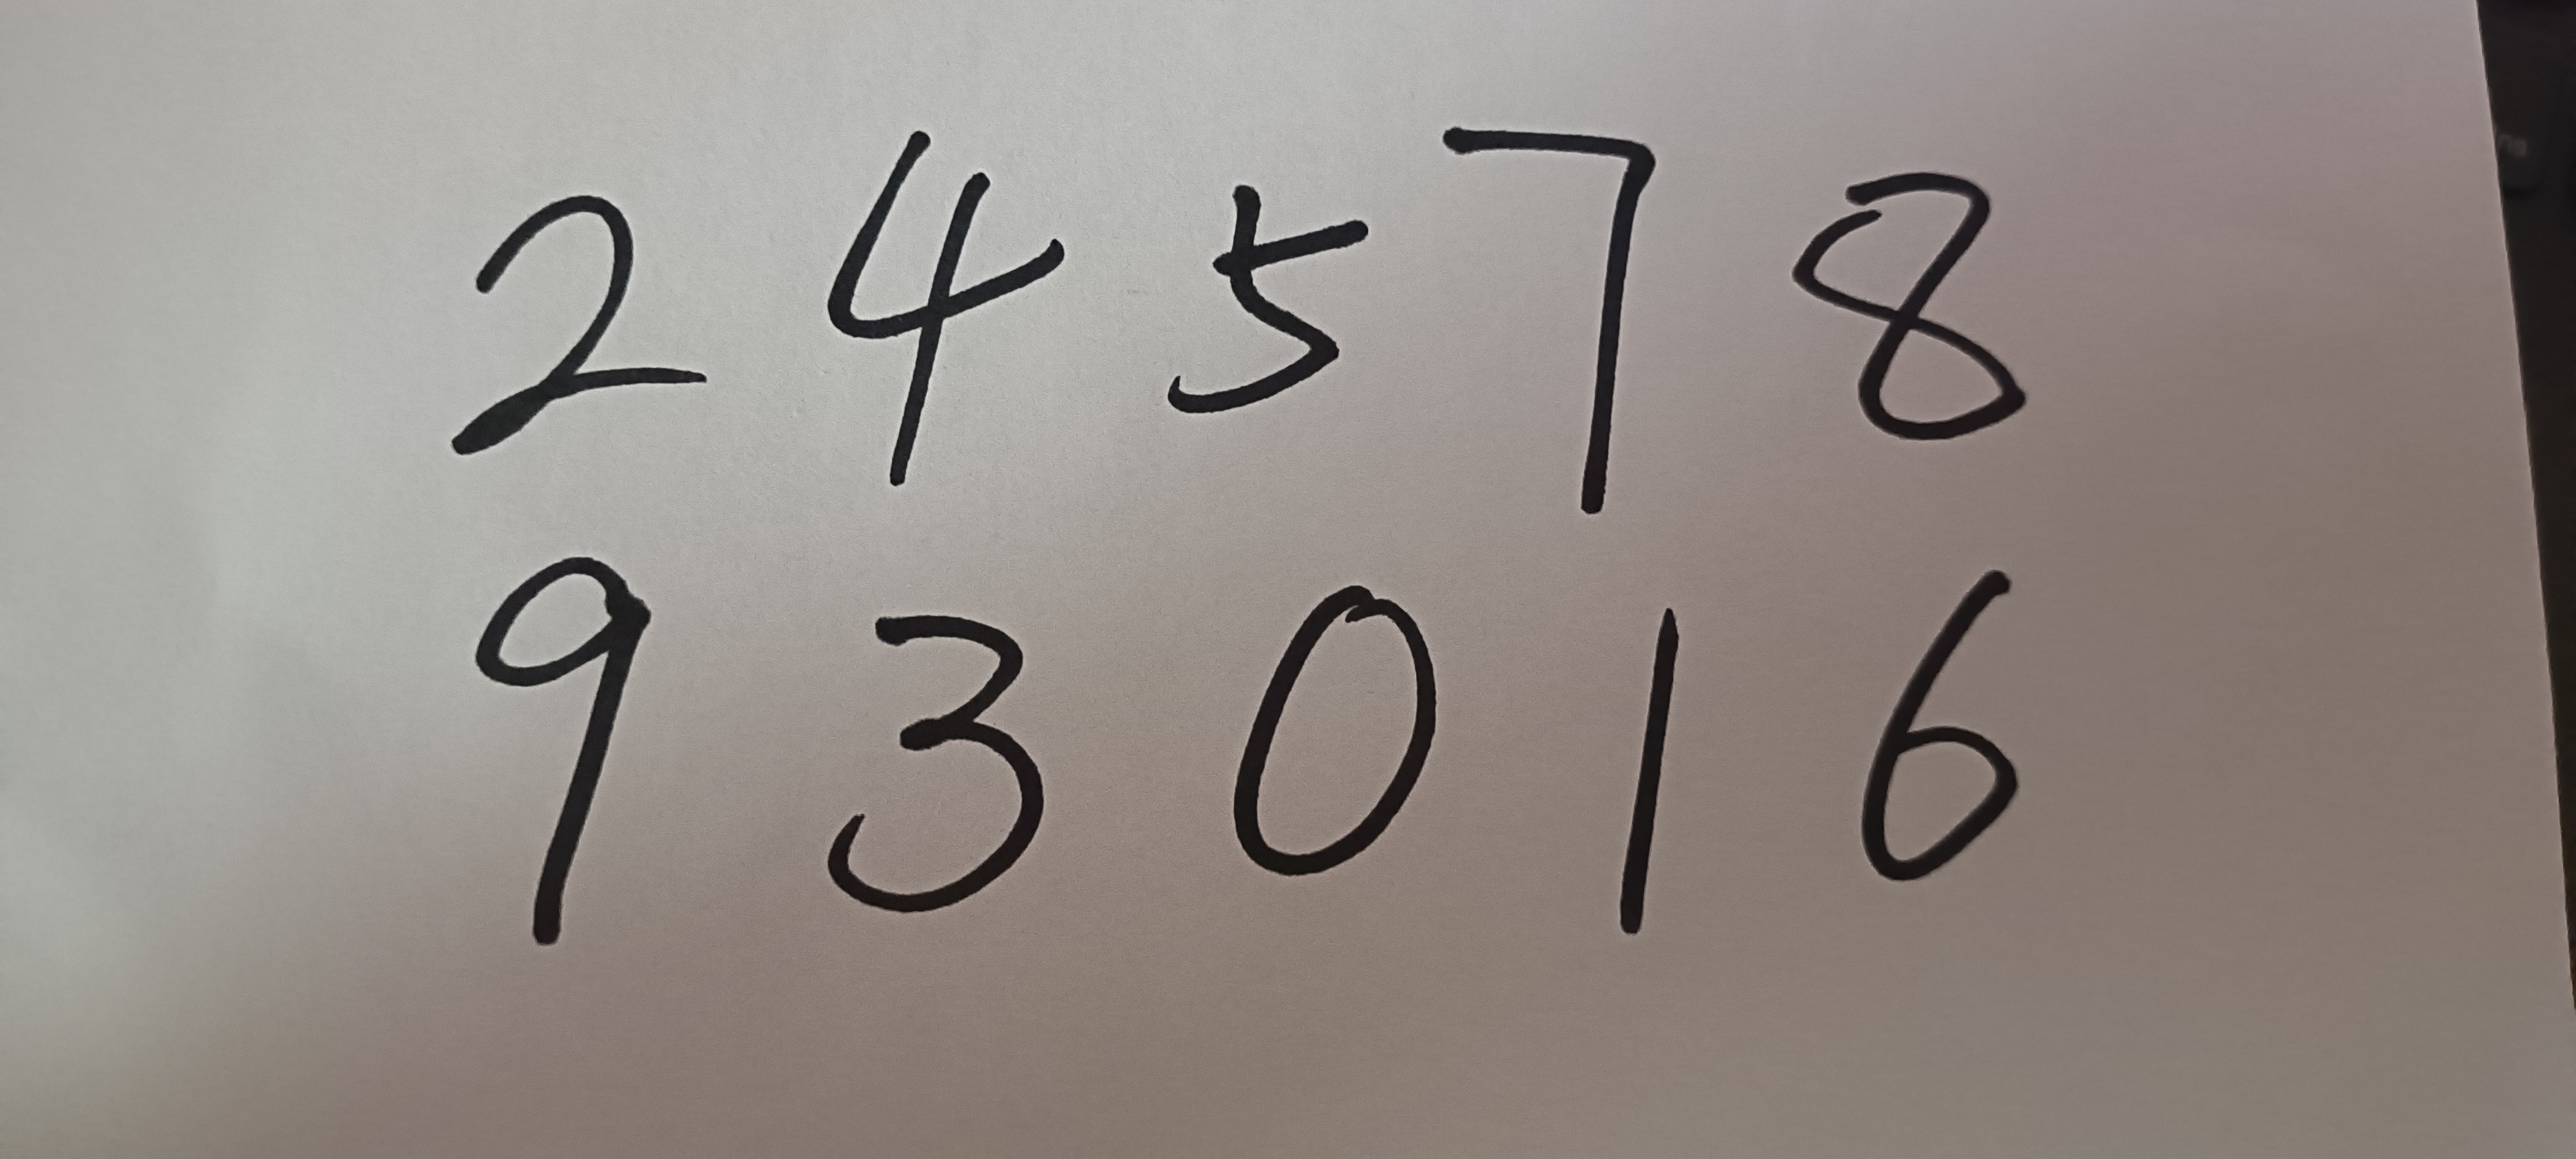 2 4 5 7 8
9 3 0 1 6